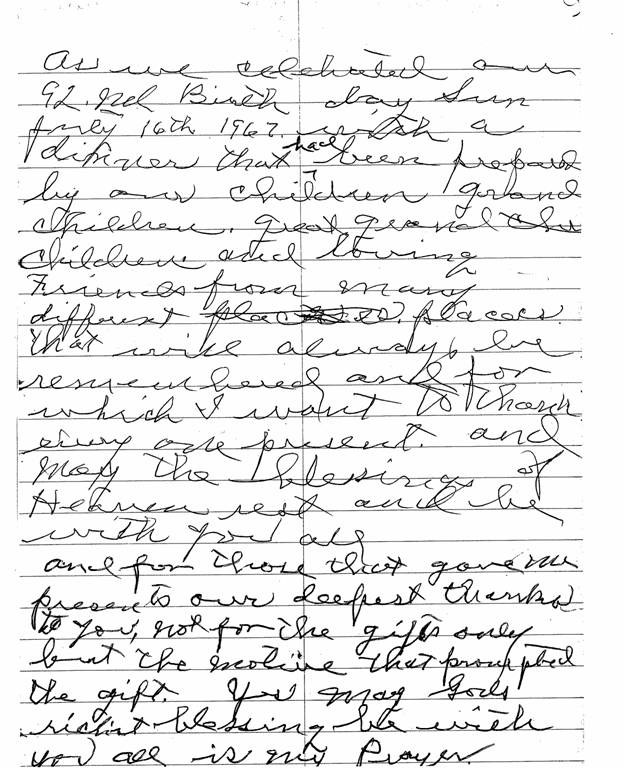 As we celebrated our
92.nd Birth day Sun
July 16th 1967. with a
dinner that had been prepared
by our children grand
children, great grand
children and loving
Friends from many
different places
that will always be
remembered and for
which I want to thank
every one present. and
may the blessings of
Heaven rest and be
with you all
and for those that gave me
presents our deepest thanks
to you, not for the gifts only
but the motive that prompted
the gift. Yes may Gods
richest blessing be with
you all is my Prayer.